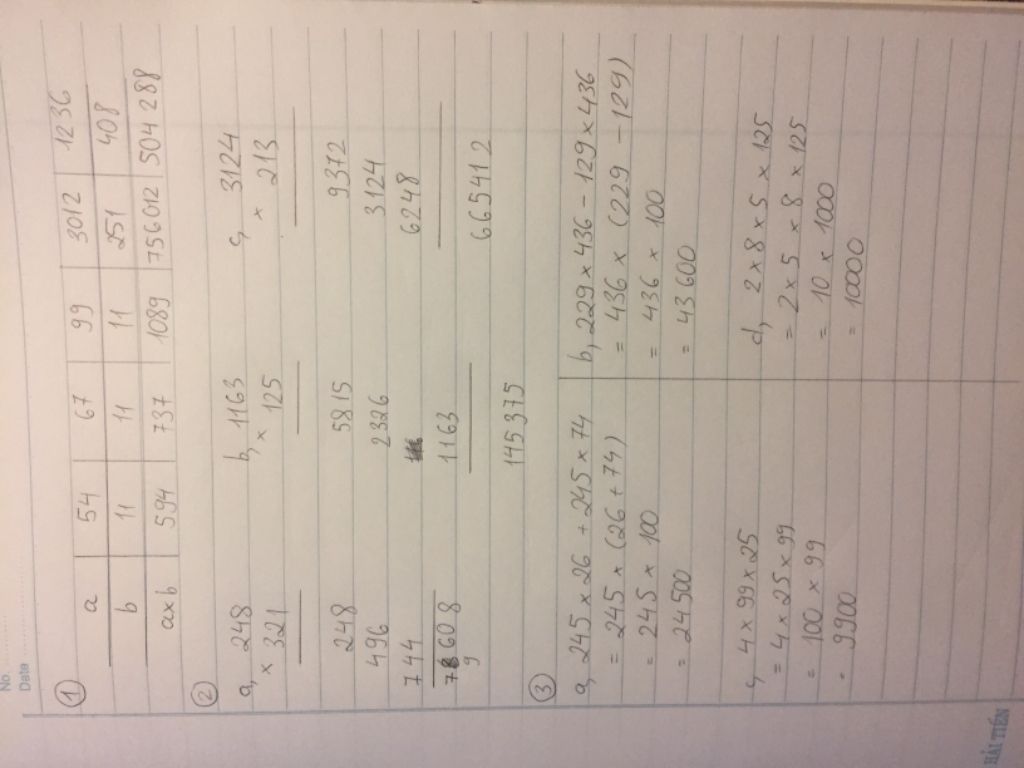 No.
Date
1
a 54 67 99 3012 1236
b 11 11 11 251 408
a×b 594 737 1089 756012 504 288
2
a, 248 b, 1163 c, 3124
× 321 × 125 × 213
248 5815 9372
496 2326 3124
744 6248
78608 1163
9
665412
145375
3
a, 245 × 26 + 245 × 74 b, 229 × 436 - 129 × 436
= 245 × (26 + 74) = 436 × (229 - 129)
= 245 × 100 = 436 × 100
= 24500 = 43 600
c, 4 × 99 × 25 d, 2 × 8 × 5 × 125
= 4 × 25 × 99 = 2 × 5 × 8 × 125
= 100 × 99 = 10 × 1000
= 9900 = 10000
HẢI TIẾN